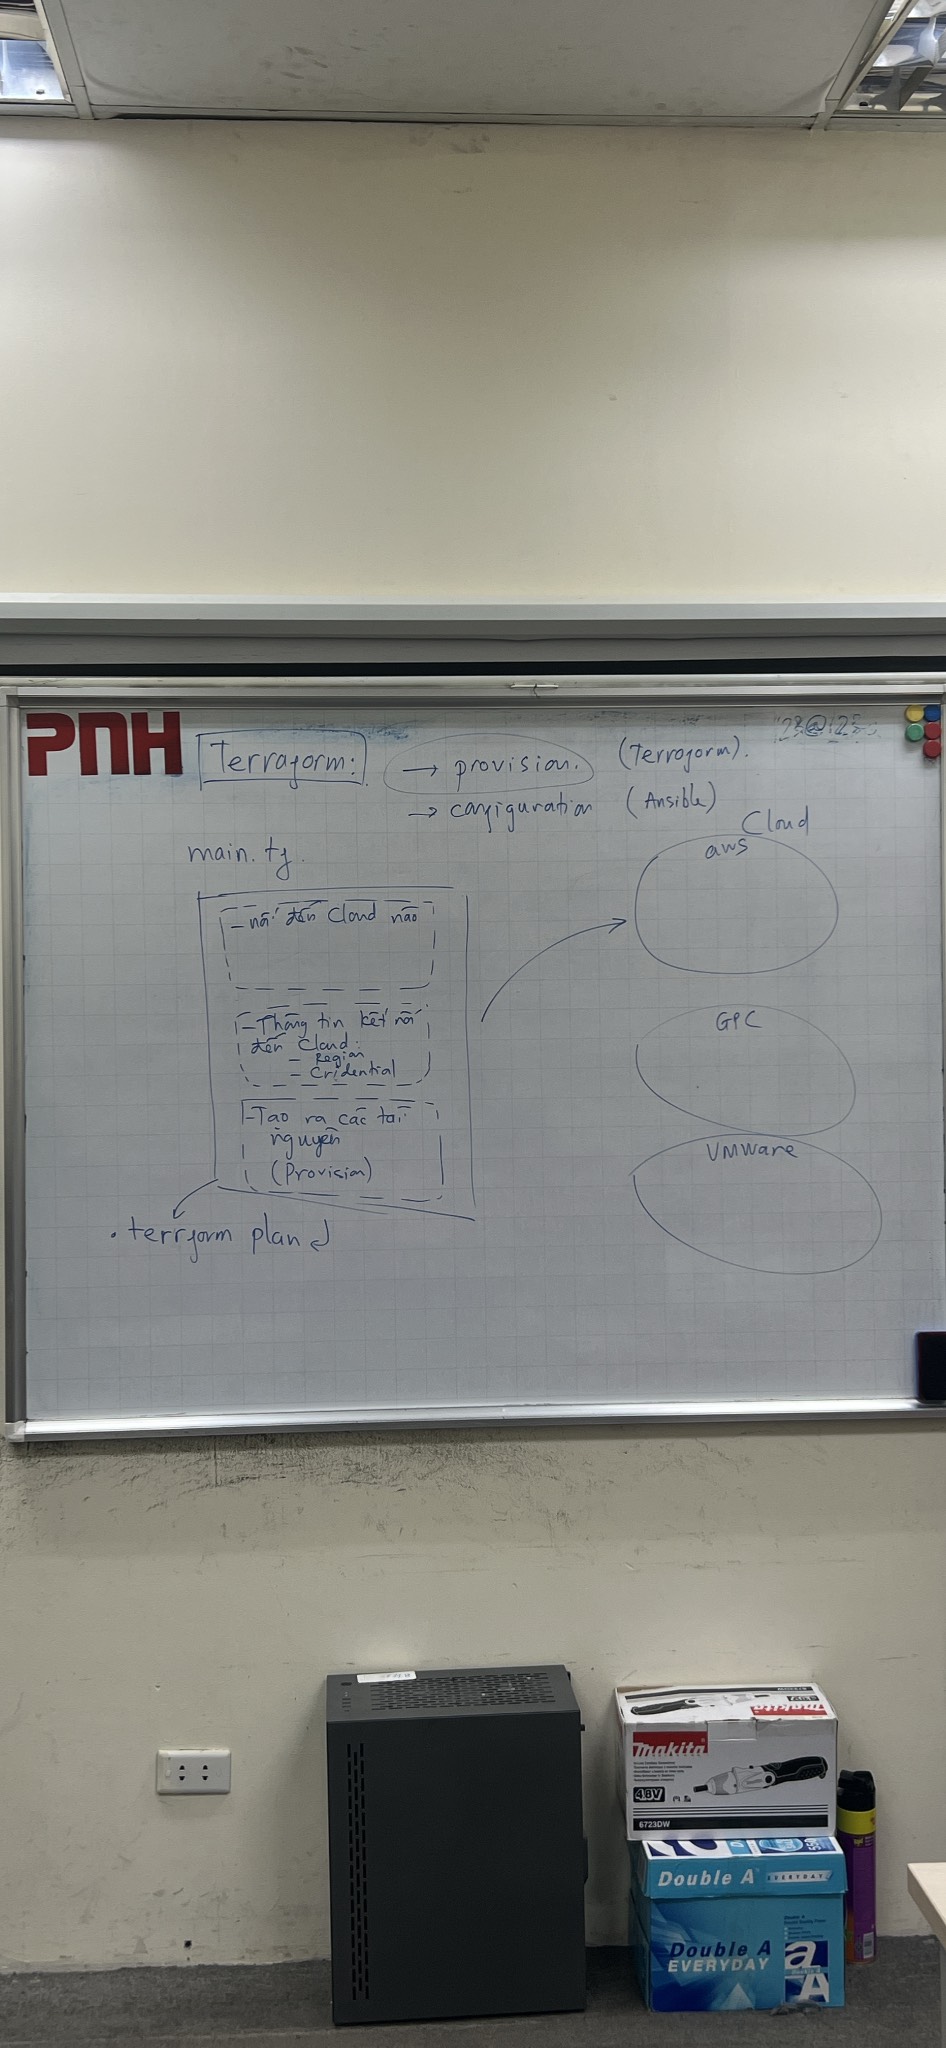 PNH
Terraform:
→ provision. (Terraform).
→ configuration (Ansible)
Cloud
main.tf.
aws
- nối đến Cloud nào
- Thông tin kết nối
đến Cloud:
- Region
- Cridential
GPC
- Tạo ra các tài
nguyên
(Provision)
VMWare
• terrform plan ↲
makita
4.8V
6723DW
Double A EVERYDAY
Double A
EVERYDAY